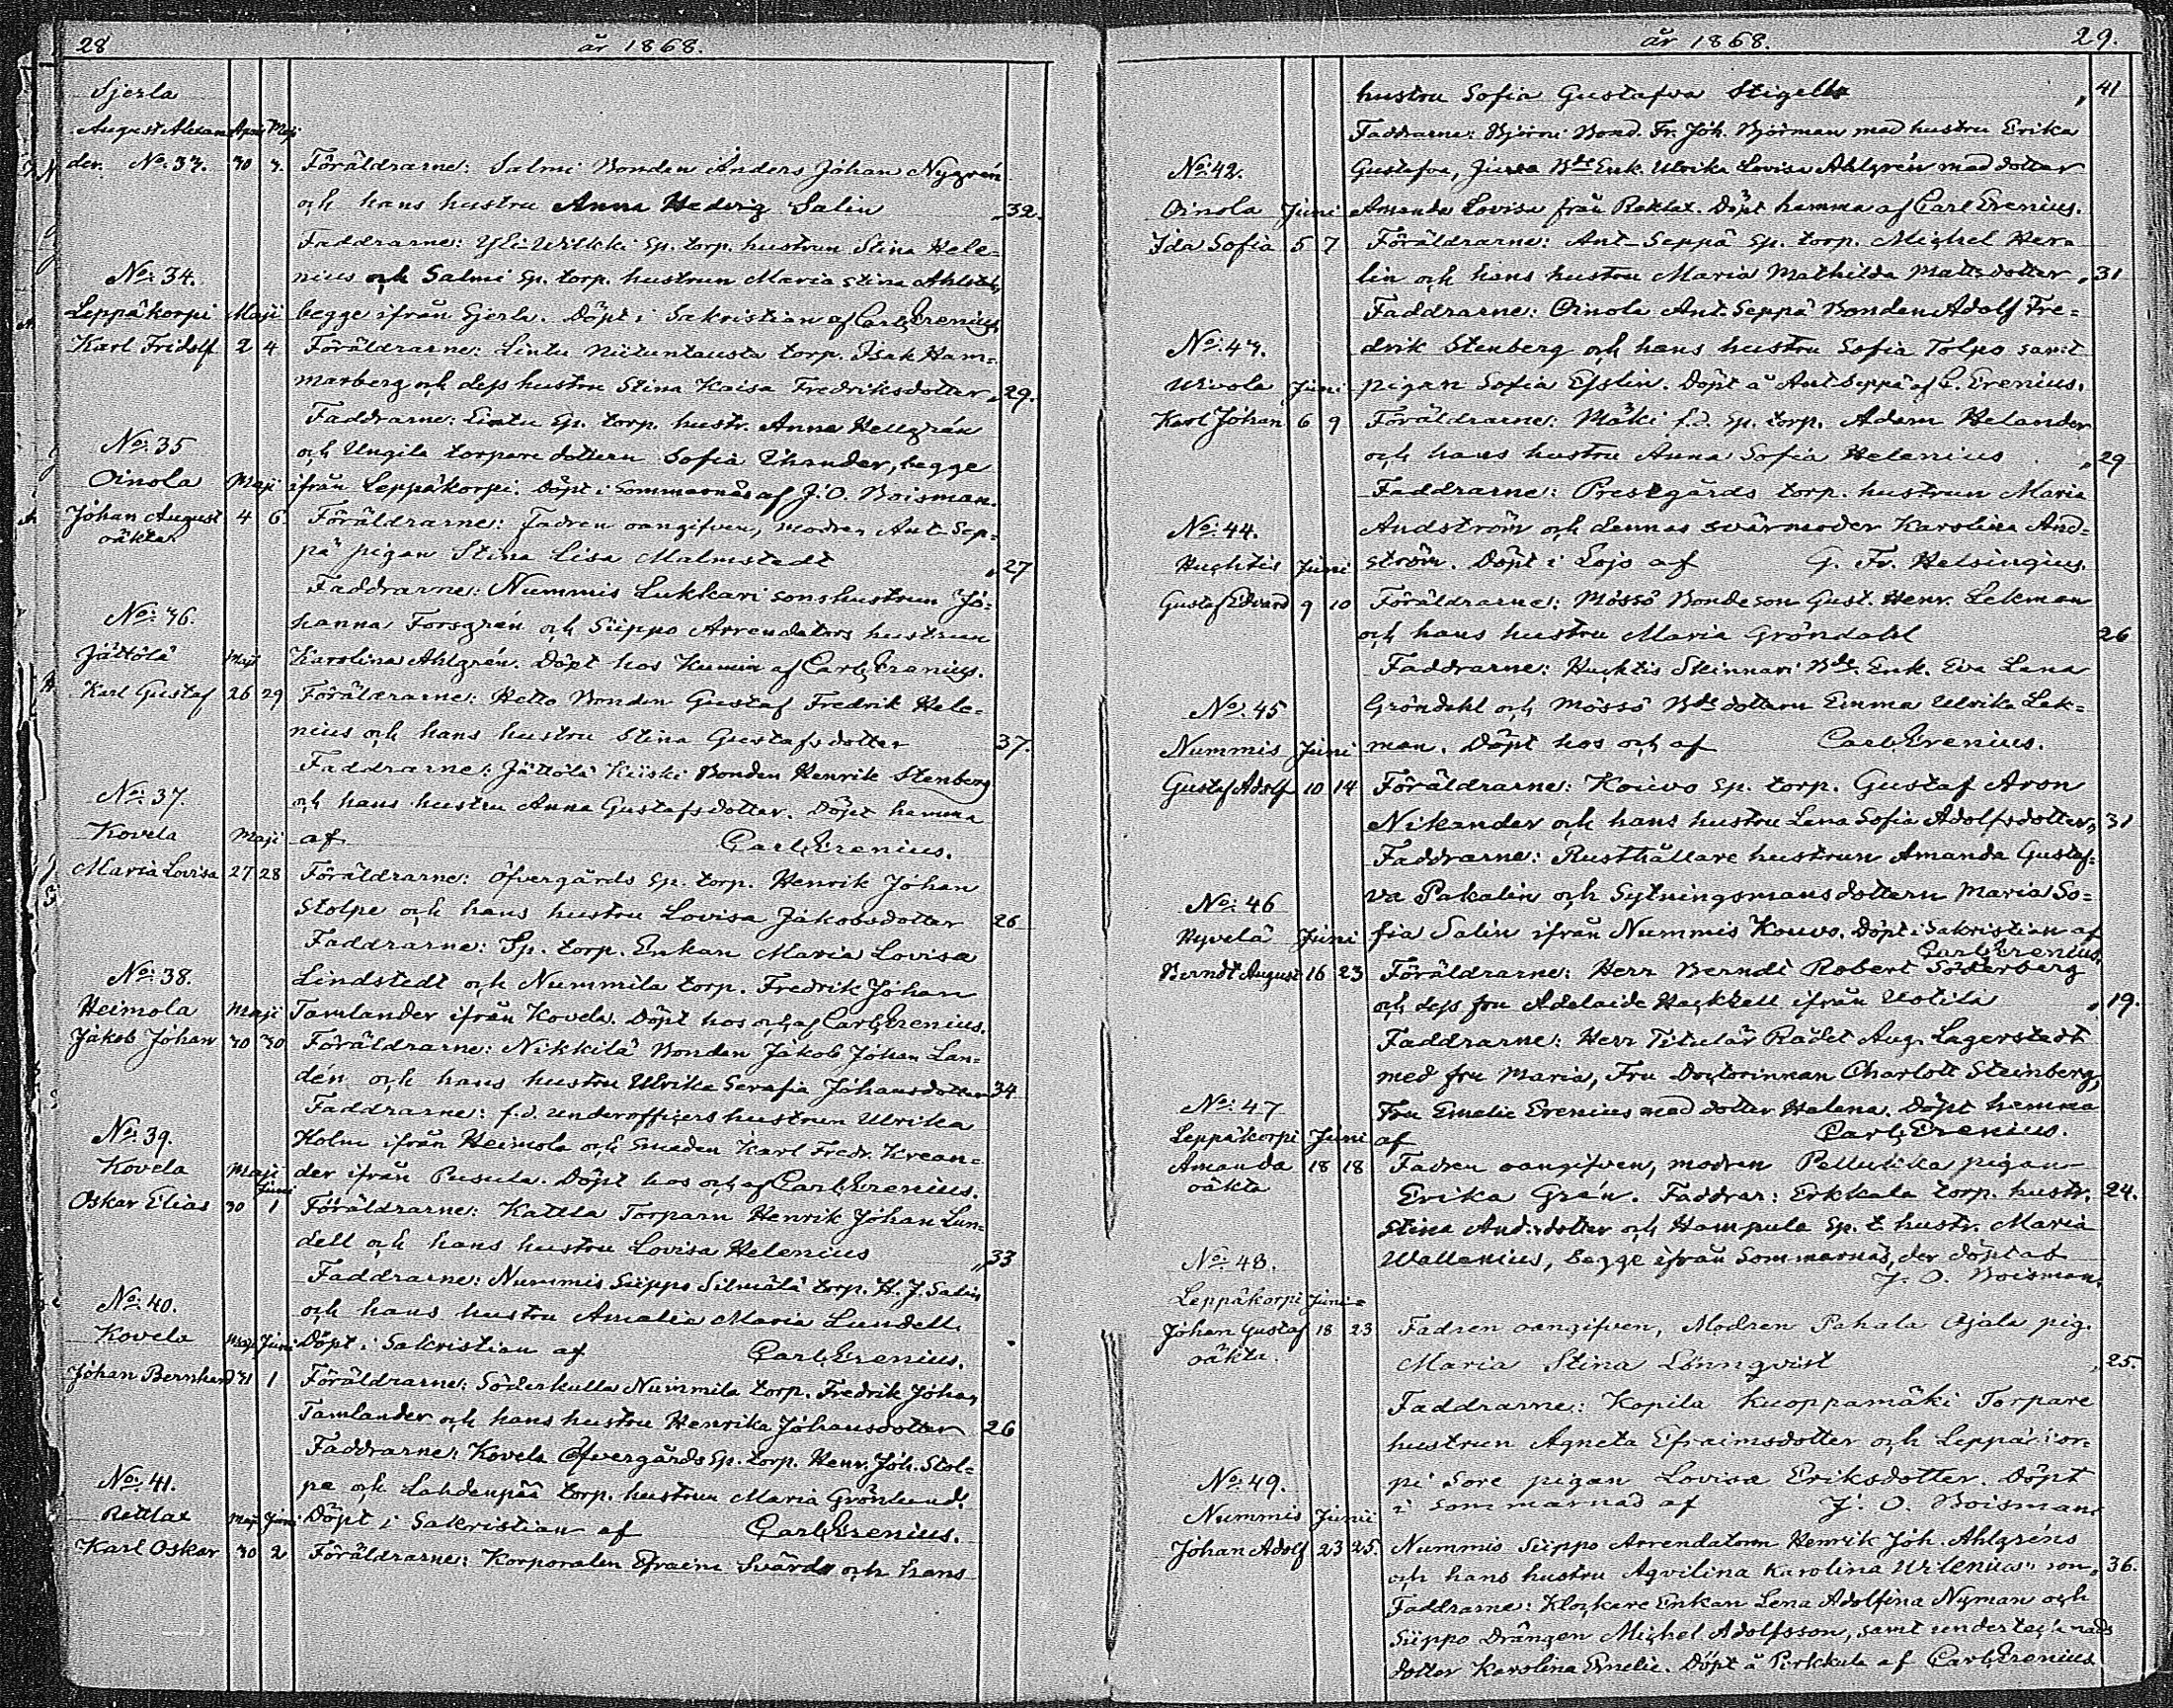 28 år 1868.
Sjerla
August Alexan- April Maji
der. No: 33. 30 3. Föräldrarne: Salmi Bonden Anders Johan Nygrén
och hans hustru Anna Hedvig Salin „32.
Faddrarne: Yli Wikki Sp. torp. hustrun Stina Hele=
No: 34. nius och Salmi Sp. torp. hustrun Maria Stina Ahlstedt,
Leppäkorpi Maji begge ifrån Sjerla. Döpt i Sakristian af Carl Grenius.
Karl Fridolf 2 4 Föräldrarne: Lintu Niituntausta torp. Isak Ham=
marberg och dess hustru Stina Kaisa Fredriksdotter „29.
Faddrarne: Lintu Sp. torp. hustr. Anna Hellgrén
No: 35 och Ungila torpare dottern Sofia Thander, begge
Oinola Maji ifrån Leppäkorpi. Döpt i Sommarnäs af J. O. Boisman.
Johan August 4 6. Föräldrarne: Fadren oangifven, modren Ant Sep=
oäkta pä pigan Stina Lisa Malmstedt „27
Faddrarne: Nummis Lukkari sonshustrun Jo=
No: 36. hanna Forsgrén och Siippo Arrendators hustrun
Jättölä Maji Karolina Ahlgrén. Döpt hos Kumin af Carl Grenius.
Karl Gustaf 26 29 Föräldrarne: Hetto Bonden Gustaf Fredrik Hele=
nius och hans hustru Stina Gustafsdotter 37.
Faddrarne: Jättölä Kiiski Bonden Henrik Stenberg
No: 37. och hans hustru Anna Gustafsdotter. Döpt hemma
Kovela Maji af Carl Grenius.
Maria Lovisa 27 28 Föräldrarne: Öfvergårds Sp. torp. Henrik Johan
Stolpe och hans hustru Lovisa Jakobsdotter 26
Faddrarne: Sp. torp. Enkan Maria Lovisa
No: 38. Lindstedt och Nummila torp. Fredrik Johan
Heimola Maji Tamlander ifrån Kovela. Döpt hos och af Carl Grenius.
Jakob Johan 30 30 Föräldrarne: Nikkilä Bonden Jakob Johan Lan=
dén och hans hustru Ulrika Serafia Johansdotter 34
Faddrarne: f.d. underofficers hustrun Ulrika
No: 39. Holm ifrån Heimola och Smeden Karl Fredr. Krean=
Kovela Maji Juni der ifrån Pusula. Döpt hos och af Carl Grenius.
Oskar Elias 30 1 Föräldrarne: Kattla Torparn Henrik Johan Lun=
dell och hans hustru Lovisa Helenius „33
Faddrarne: Nummis Siippo Silmälä torp. H. J. Salin
No: 40. och hans hustru Amalia Maria Lundell.
Kovela Maji Juni Döpt i Sakristian af Carl Grenius.
Johan Bernhard 31 1 Föräldrarne: Söderkulla Nummila torp. Fredrik Johan
Tamlander och hans hustru Henrika Johansdotter 26
Faddrarne: Kovela Öfvergårds Sp. torp. Henr. Joh. Stol=
No: 41. pe och Lahdenpää torp. hustrun Maria Grönlund.
Retlax Maji Juni Döpt i Sakristian af Carl Grenius.
Karl Oskar 30 2 Föräldrarne: Korporalen Efraim Svärd och hans
år 1868. 29.
hustru Sofia Gustafva Stigell „41
Faddrarne: Björni Bond. Fr. Joh. Björman med hustru Erika
No: 42. Gustafva, Jussa Bde Enk. Ulrika Lovisa Ahlgrén med dotter
Oinola Juni Amanda Lovisa från Retlax. Döpt hemma af Carl Grenius.
Ida Sofia 5 7 Föräldrarne: Ant-Seppä Sp. torp. Michel Hera
lin och hans hustru Maria Mathilda Mattsdotter „31
Faddrarne: Oinola Ant-Seppä Bonden Adolf Fre=
No: 43. drik Stenberg och hans hustru Sofia Tolpo samt
Uivola Juni pigan Sofia Esslin. Döpt å Ant Seppä af C. Grenius.
Karl Johan 6 9 Föräldrarne: Mäki f.d. Sp. torp. Adam Helander
och hans hustru Anna Sofia Helenius „29
Faddrarne: Prestgårds torp. hustrun Maria
No: 44. Andström och dennas svärmoder Karolina And=
Huhtis Juni ström. Döpt i Lojo af G. Fr. Helsingius.
Gustaf Edvard 9 10 Föräldrarne: Mössö Bondeson Gust. Henr. Lekman
och hans hustru Maria Gröndahl 26
Faddrarne: Huhtis Skinnari Bde. Enk. Eva Lena
No: 45 Gröndahl och Mössö Bdsdottern Emma Ulrika Lek=
Nummis Juni man. Döpt hos och af Carl Grenius.
Gustaf Adolf 10 14 Föräldrarne: Koivo Sp. torp. Gustaf Aron
Nikander och hans hustru Lena Sofia Adolfsdotter „31
Faddrarne: Rusthållare hustrun Amanda Gustaf=
No: 46 va Pakalin och Sytningsmansdottern Maria So=
Hyvelä Juni fia Salin ifrån Nummis Kouvo. Döpt i Sakristian af
Carl Grenius.
Berndt August 16 23 Föräldrarne: Herr Berndt Robert Söderberg
och dess fru Adelaide Hackzell ifrån Uotila „19.
Faddrarne: Herr Titulär Rådet Aug. Lagerstedt
med fru Maria, Fru Doctorinnan Charlott Steinberg,
No: 47 Fru Emelie Grenius med dotter Helena. Döpt hemma
Leppäkorpi Juni af Carl Grenius.
Amanda 18 18 Fadren oangifven, modren Pellulika pigan
oäkta Erika Grén. Faddrar: Erkkala torp. hustr. 24.
Stina And:dotter och Hampula Sp. t. hustr. Maria
No: 48. Wallenius, begge ifrån Sommarnäs, der döpt af
J. O. Boisman.
Leppäkorpi Juni
Johan Gustaf 18 23 Fadren oangifven, Modren Pahala Ojala pig.
oäkta. Maria Stina Lönnqvist „25.
Faddrarne: Kopila Kuoppamäki Torpare
hustrun Agneta Efraimsdotter och Leppäkor=
No: 49. pi Sore pigan Lovisa Eriksdotter. Döpt
i Sommarnäs af J. O. Boisman.
Nummis Junii
Johan Adolf 23 25. Nummis Siippo Arrendatorn Henrik Joh. Ahlgréns
och hans hustru Aqvilina Karolina Wilenius' son „36.
Faddrarne: Klockare Enkan Lena Adolfina Nyman och
Siippo Drängen Michel Adolfsson, samt undertecknads
dotter Karolina Emelie. Döpt å Pirkkula af Carl Grenius